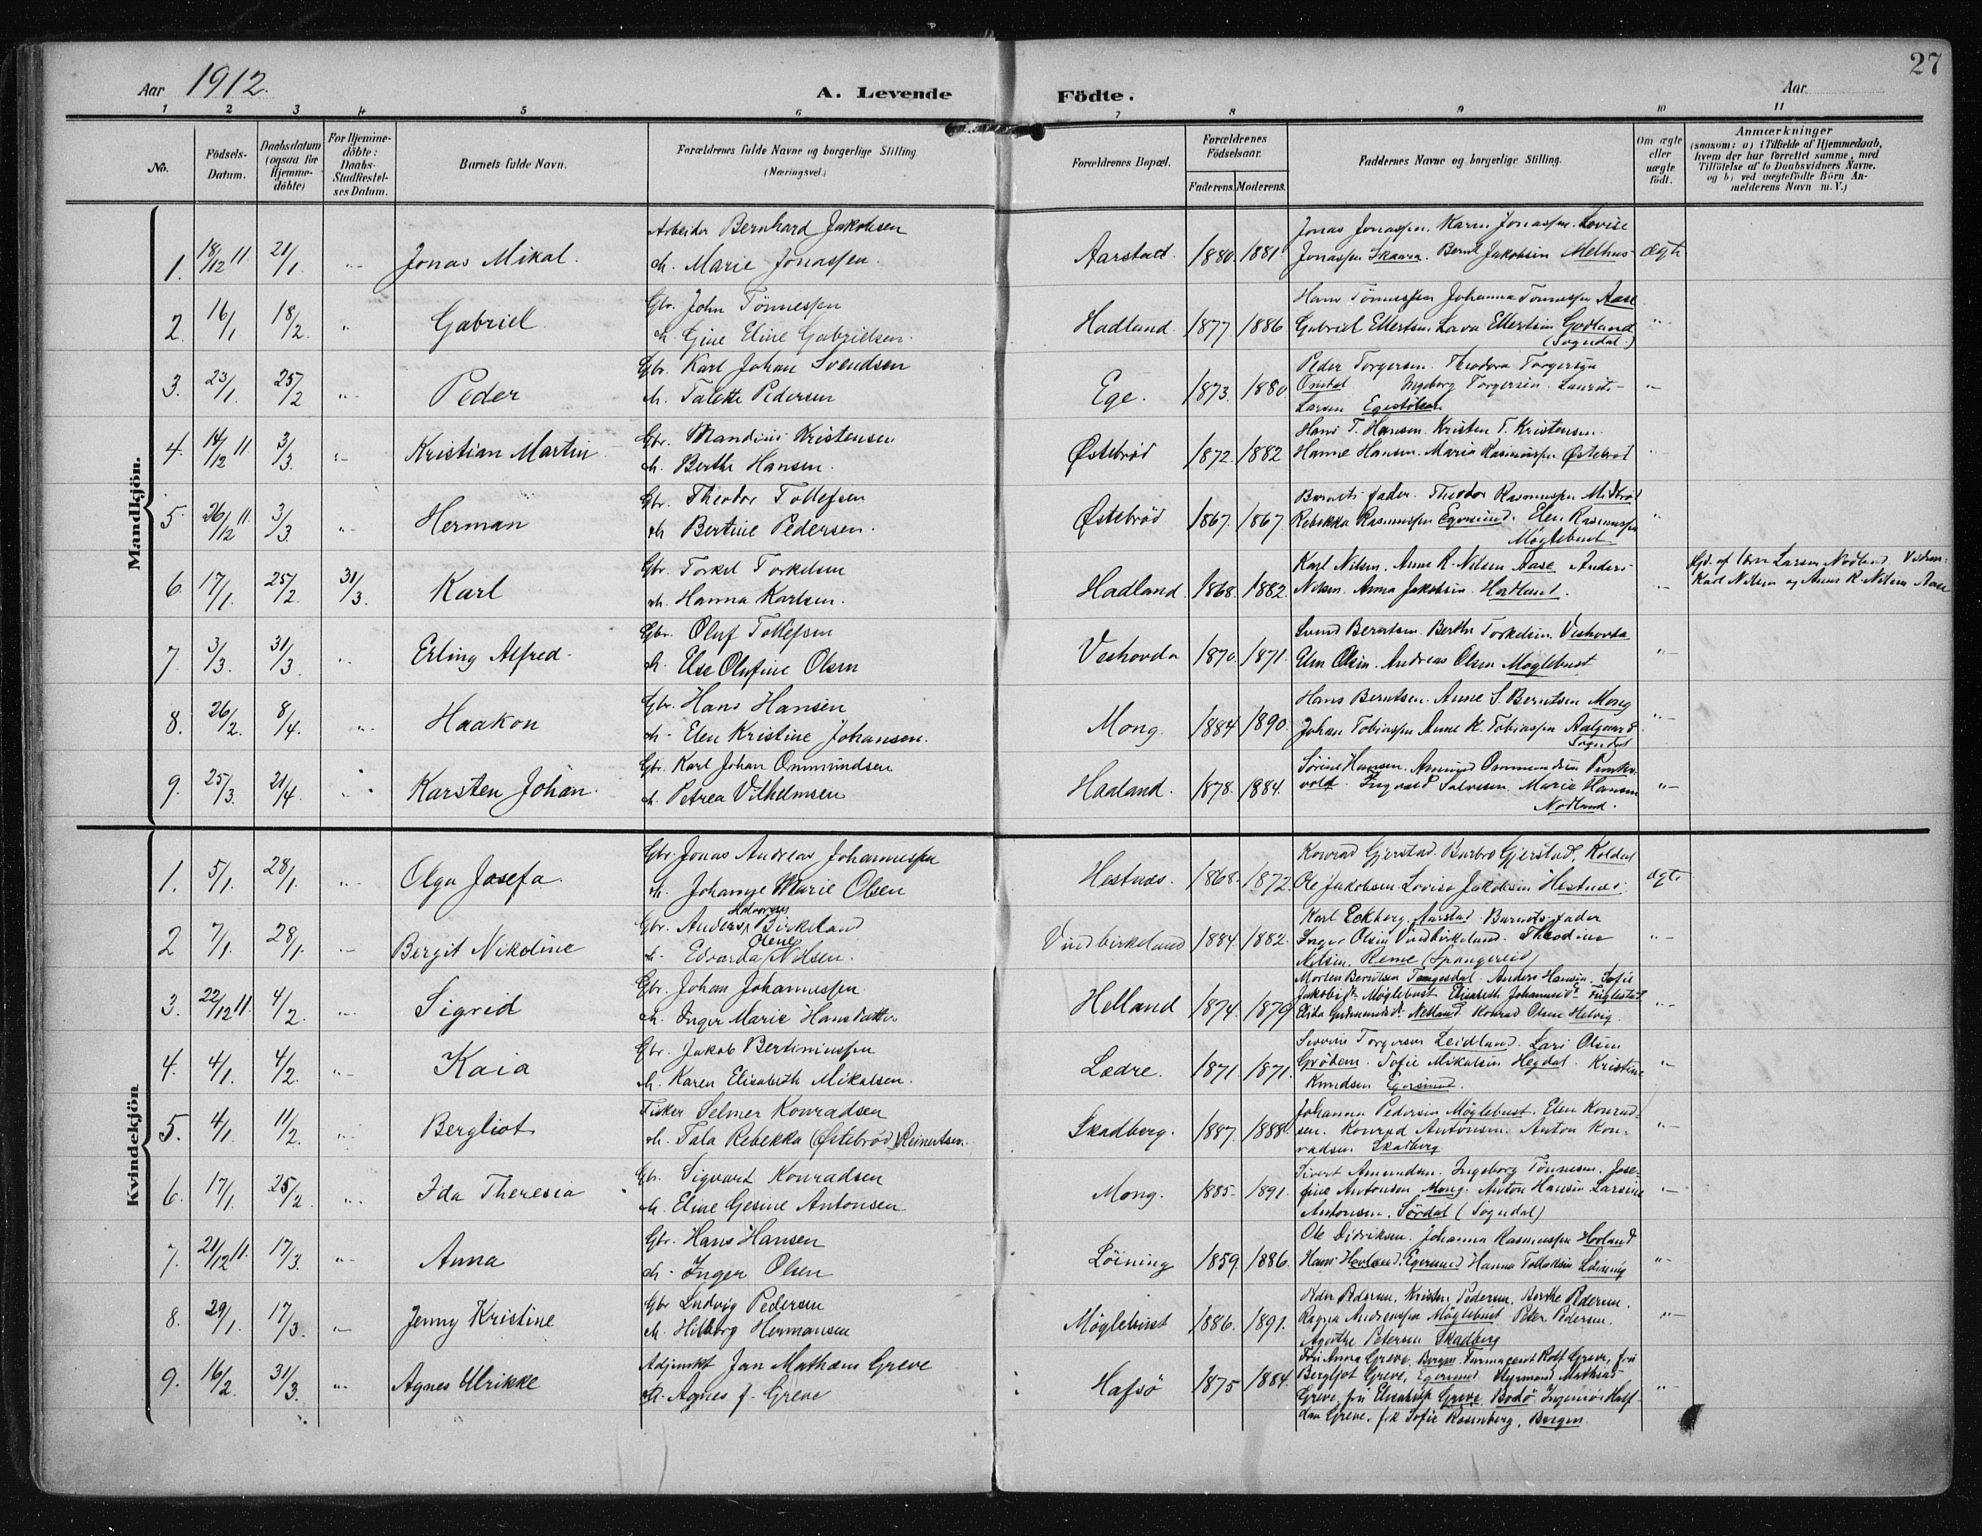 27
Aar 1912. A. Levende Födte. Aar
1 2 3 4 5 6 7 8 9 10 11
No. Födsels-Datum. Daabsdatum (ogsaa for Hjemme-döbte) For Hjemme-döbte: Daabs-Stadfæstel-ses Datum. Barnets fulde Navn. Forældrenes fulde Navne og borgerlige Stilling. (Næringsvei.) Forældrenes Bopæl. Forældrenes Födselsaar. Faderens. Moderens. Faddernes Navne og borgerlige Stilling. Om ægte eller uægte födt. Anmærkninger (saasom: a) i Tilfælde af Hjemmedaab, hvem der har forrettet samme, med Tilföielse af to Daabsvidners Navne. og b) ved uægtefödte Börn An-melderens Navn m. V.)
Mandkjön.
Arbeider Bernhard Jakobsen Jonas Jonassen. Karen Jonassen. Lovise
1. 18/12 11 21/1 „ Jonas Mikal. M. Marie Jonassen. Aarstad. 1880. 1881. Jonassen Skaara. Bernt Jakobsen Melhus ægte
Gbr. John Tönnessen Hans Tönnessen Johanna Tönnessen Aase
2. 16/1 18/2. „ Gabriel. M. Gine Eline Gabrielsen. Hadland. 1877. 1886 Gabriel Ellertsen Lava Ellertsen Godland (Sogndal.) „
Gbr. Karl Johan Svendsen Peder Torgersen. Theodora Torgersen
3. 23/1. 25/2 „ Peder M. Talette Pedersen Ege. 1873. 1880. Omdal Ingeborg Torgersen. Laurits „
Larsen Egestölen
Gbr. Mandius Kristensen Hans T. Hansen. Kristen T. Kristensen.
4. 14/12 11 3/3. „ Kristian Martin M. Berthe Hansen. Østebrød 1872. 1882 Hanne Hansen. Maria Rasmussen Østebrød „
Gbr. Theodor Tollefsen Barnets fader. Theodor Rasmussen Midbrød
5. 26/12 11. 3/3. „ Herman M Bertine Pedersen. Østebrød 1867. 1867 Rebekka Rasmussen Egersund. Elen Rasmussen „
Møglebust
Gbr. Torkel Torkelsen Karl Nilsen. Anne R. Nilsen Aase Anders
6 17/1. 25/2 31/3. Karl M. Hanna Karlsen. Hadland. 1868. 1882. Nilsen. Anna Jakobsen Hadland. „ Hjd. af Larsen Nodland
Karl Nilsen og Anne R. Nilsen Aase
Gbr. Oluf Tollefsen Svend Berntsen. Berthe Torkelsen. Veshovda
7. 3/3. 31/3. „ Erling Alfred. M. Else Olufine Olsen Veshovda 1870. 1871. Elen Olsen. Andreas Olsen Møglebust „
Gbr. Hans Hansen Hans Berntsen. Anne S. Berntsen Mong
8. 26/2. 8/4. „ Haakon M. Elen Kristine Johansen. Mong. 1884 1890. Johan Tobiassen Anne K. Tobiassen Aalgaard „
Sogndal
Gbr. Karl Johan Ommundsen Sørine Hansen.
9. 25/3. 21/4. „ Karsten Johan. M. Petrea Vilhelmsen Hadland. 1878. 1884. Ingvald Salvesen. Marie Hansen „
Nodland.
Kvindekjön
Gbr. Jonas Andreas Johannessen Konrad Gjerstad. Barbro Gjerstad,
1. 5/1. 28/1. „ Olga Josefa. M. Johanne Marie Olsen Hestnæs. 1868. 1872. Ole Jakobsen. Lovise Jakobsen Hestnæs. ægte
Gbr. Anders Halvorsen Birkeland Karl Eckberg. Aarstad Barnets fader
2 7/1. 28/1. „ Bergit Nikoline M. Edvarda Olene Nilsen. Vindbirkeland 1884. 1882. Inger Olsen Vindbirkeland. Theodine „
Nilsen. Reme (Spangereid)
Gbr. Johan Johannessen Morten Berntsen Tengesdal. Anders Hansen. Sofie
3. 22/12 11. 4/2. „ Sigrid M. Inger Marie Hansdatter Helland 1874. 1879 Møglebust Elisabeth Fuglestad „
Netland Konrad Olsen Helvig.
Gbr. Jakob Bertiniussen Torgersen Leidland. Lars Olsen
4. 4/1. 4/2. „ Kaia M. Karen Elisabeth Mikalsen. Lædre. 1871 1871. Grødem. Sofie Mikalsen Hegdal. Kristine „
Knudsen Egersund.
Fisker Selmer Konradsen Johanna Pedersen Møglebust. Elen Konrad-
5. 4/1. 11/2. „ Bergliot M. Tala Rebekka (Østebrød) Reinertsen. Skadberg. 1887. 1888. sen. Konrad Antonsen. Anton Kon- „
radsen Skadberg
Gbr. Sigvart Konradsen Sivert Amundsen. Ingeborg Tönnesen. Jose-
6. 17/1. 25/2. „ Ida Theresia M. Eline Gesine Antonsen Mong. 1885. 1891. fine Antonsen Mong. Anton Hansen Larsine „
Antonsen. Sørdal (Sogndal)
Gbr. Hans Hansen Ole Didriksen. Johanna Rasmussen Hovland
7. 21/12 11. 17/3. „ Anna M. Inger Olsen Løining 1859. 1886. Hans Hovland. Egersund Hanna Tollaksen Løining „
Gbr Ludvig Pedersen Peder Pedersen. Kristen Pedersen, Berthe Pedersen.
8. 29/1. 17/3. „ Jenny Kristine M. Hilborg Hermansen Møglebust 1886. 1891. Ragna Andreassen Møglebust Peter Pedersen. „
Agathe Petersen Skadberg
Adjunkt Jan Mathæus Greve Fru Anna Greve. Bergen. Farmaceut Rolf Greve, fru
9. 16/2. 31/3. „ Agnes Ulrikke M. Agnes f. Greve Hafsö 1875 1884. Bergljot Greve, Egersund. Styrmand Mathias „
Greve, fru Elisabeth Greve Bodö Ingeniör Half-
dan Greve, frk Sofie Rosenberg, Bergen.